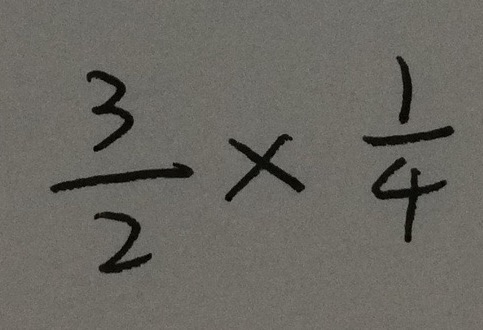 3/2 × 1/4